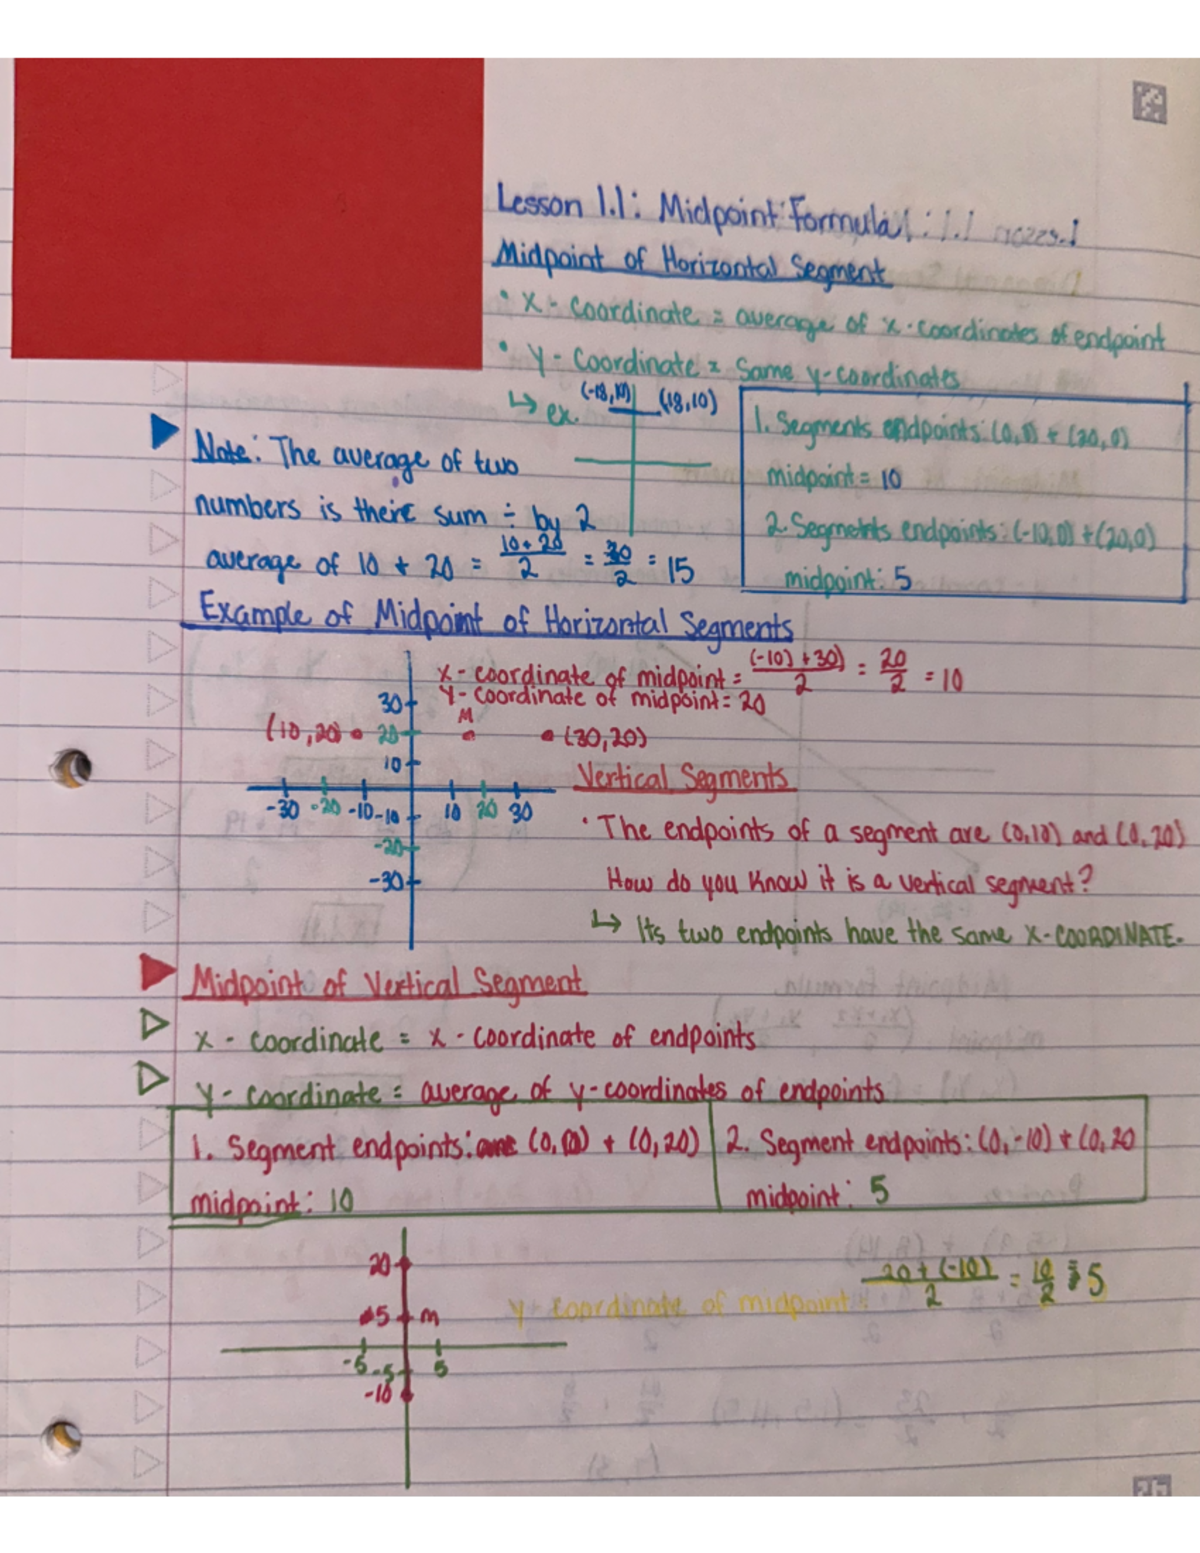 Lesson 1.1: Midpoint Formula
Midpoint of Horizontal Segment
• x - coordinate = average of x-coordinates of endpoint
• y - coordinate = same y-coordinates
↳ ex. (-18,10) (18,10)
1. Segments endpoints: (0,0) + (20,0)
midpoint = 10
2. Segments endpoints: (-10,0) + (20,0)
midpoint: 5
Note: The average of two
numbers is their sum ÷ by 2
average of 10 + 20 = 10+20/2 = 30/2 = 15
Example of Midpoint of Horizontal Segments
x - coordinate of midpoint = (-10)+30)/2 = 20/2 = 10
y - coordinate of midpoint = 20
30
M
(10,20) 20 (30,20)
10
-30 -20 -10 -10 10 20 30
-20
-30
Vertical Segments
• The endpoints of a segment are (0,10) and (0,20)
How do you know it is a vertical segment?
↳ Its two endpoints have the same X-COORDINATE.
Midpoint of Vertical Segment
x - coordinate = x - coordinate of endpoints
y - coordinate = average of y-coordinates of endpoints
1. Segment endpoints: (0,0) + (0,20)
midpoint: 10
2. Segment endpoints: (0,-10) + (0,20
midpoint: 5
20
5 m
-5 -5 5
-10
y - coordinate of midpoint: 20+(-10)/2 = 10/2 = 5